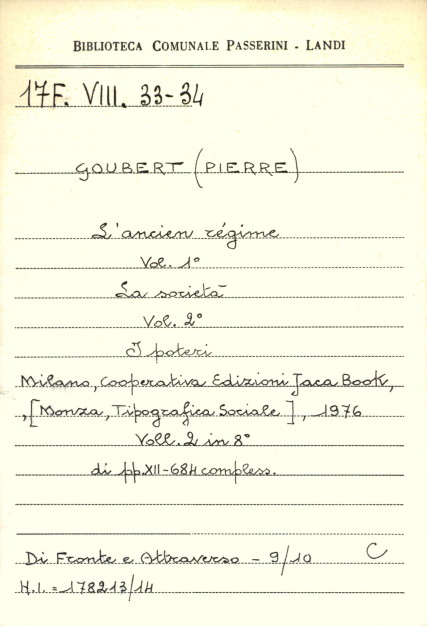 BIBLIOTECA COMUNALE PASSERINI - LANDI
17F. VIII. 33-34
GOUBERT (PIERRE)
L'ancien régime
Vol. 1°
La società
Vol. 2°
I poteri
Milano, Cooperativa Edizioni Jaca Book,
,[Monza, Tipografica Sociale], 1976
Voll. 2 in 8°
di pp. XII-684 compless.
Di Fronte e Attraverso - 9/10 C
N.I. = 178213/14